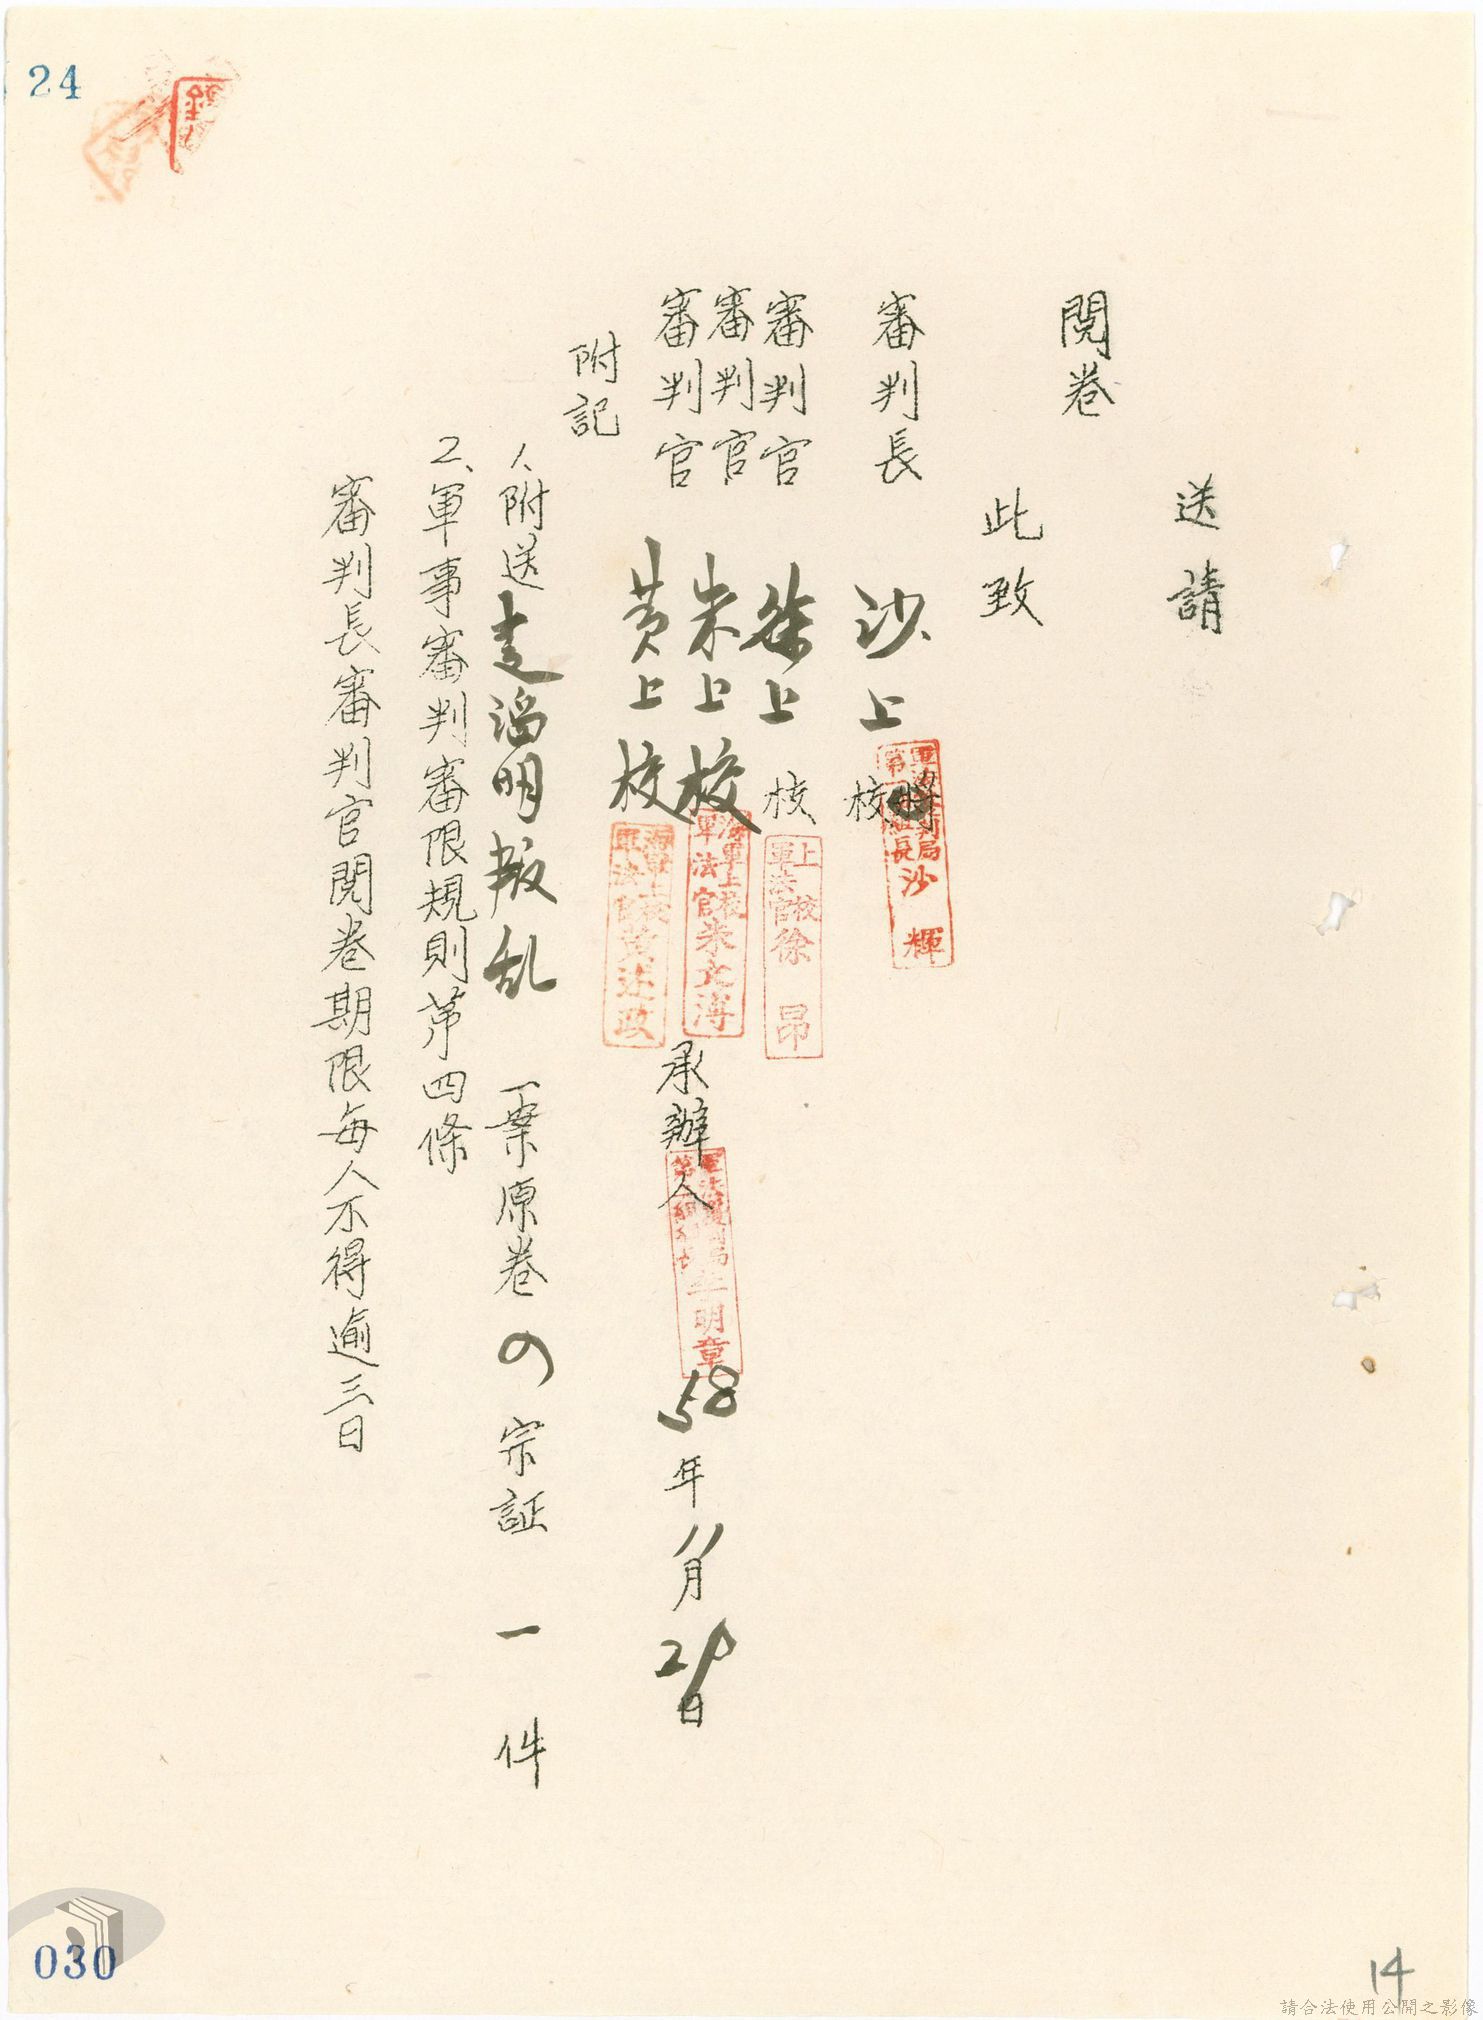 24
送請
閱卷
此致
審判長 沙上校
第 組長 沙輝
審判官 徐上校
上校
軍法官 徐昂
審判官 朱上校
海軍上校
軍法官 朱文溥
審判官 黃上校
海軍上校
軍法官 黃述政
承辦人
明章
58年11月21日
附記
1、附送 明叛乱 一案原卷 の 宗証 一 件
2、軍事審判審限規則第四條
審判長審判官閱卷期限每人不得逾三日
030
14
請合法使用公開之影像